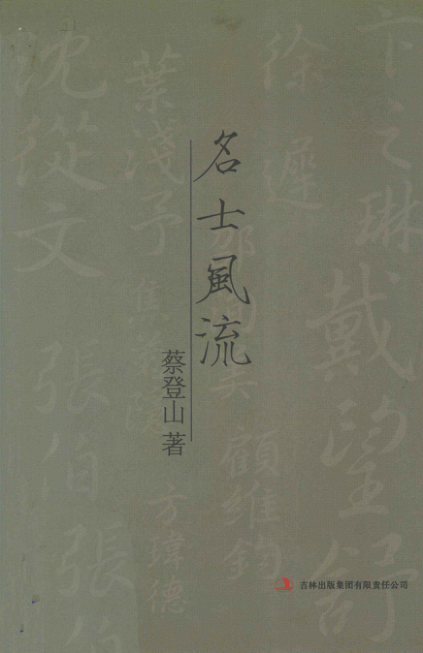 名士風流
蔡登山 著
吉林出版集团有限责任公司
卞之琳
戴望舒
徐遲
邵洵美
顧維鈞
葉淺予
方瑋德
沈從文
張伯
張伯